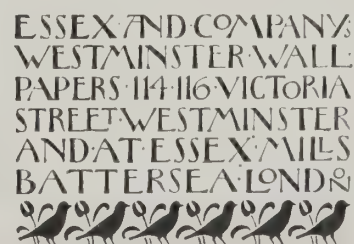 ESSEX·AND·COMPANY:S
WESTMINSTER·WALL·
PAPERS·114·116·VICTORIA
STREET·WESTMINSTER
AND·AT·ESSEX·MILLS
BATTERSEA·LONDON